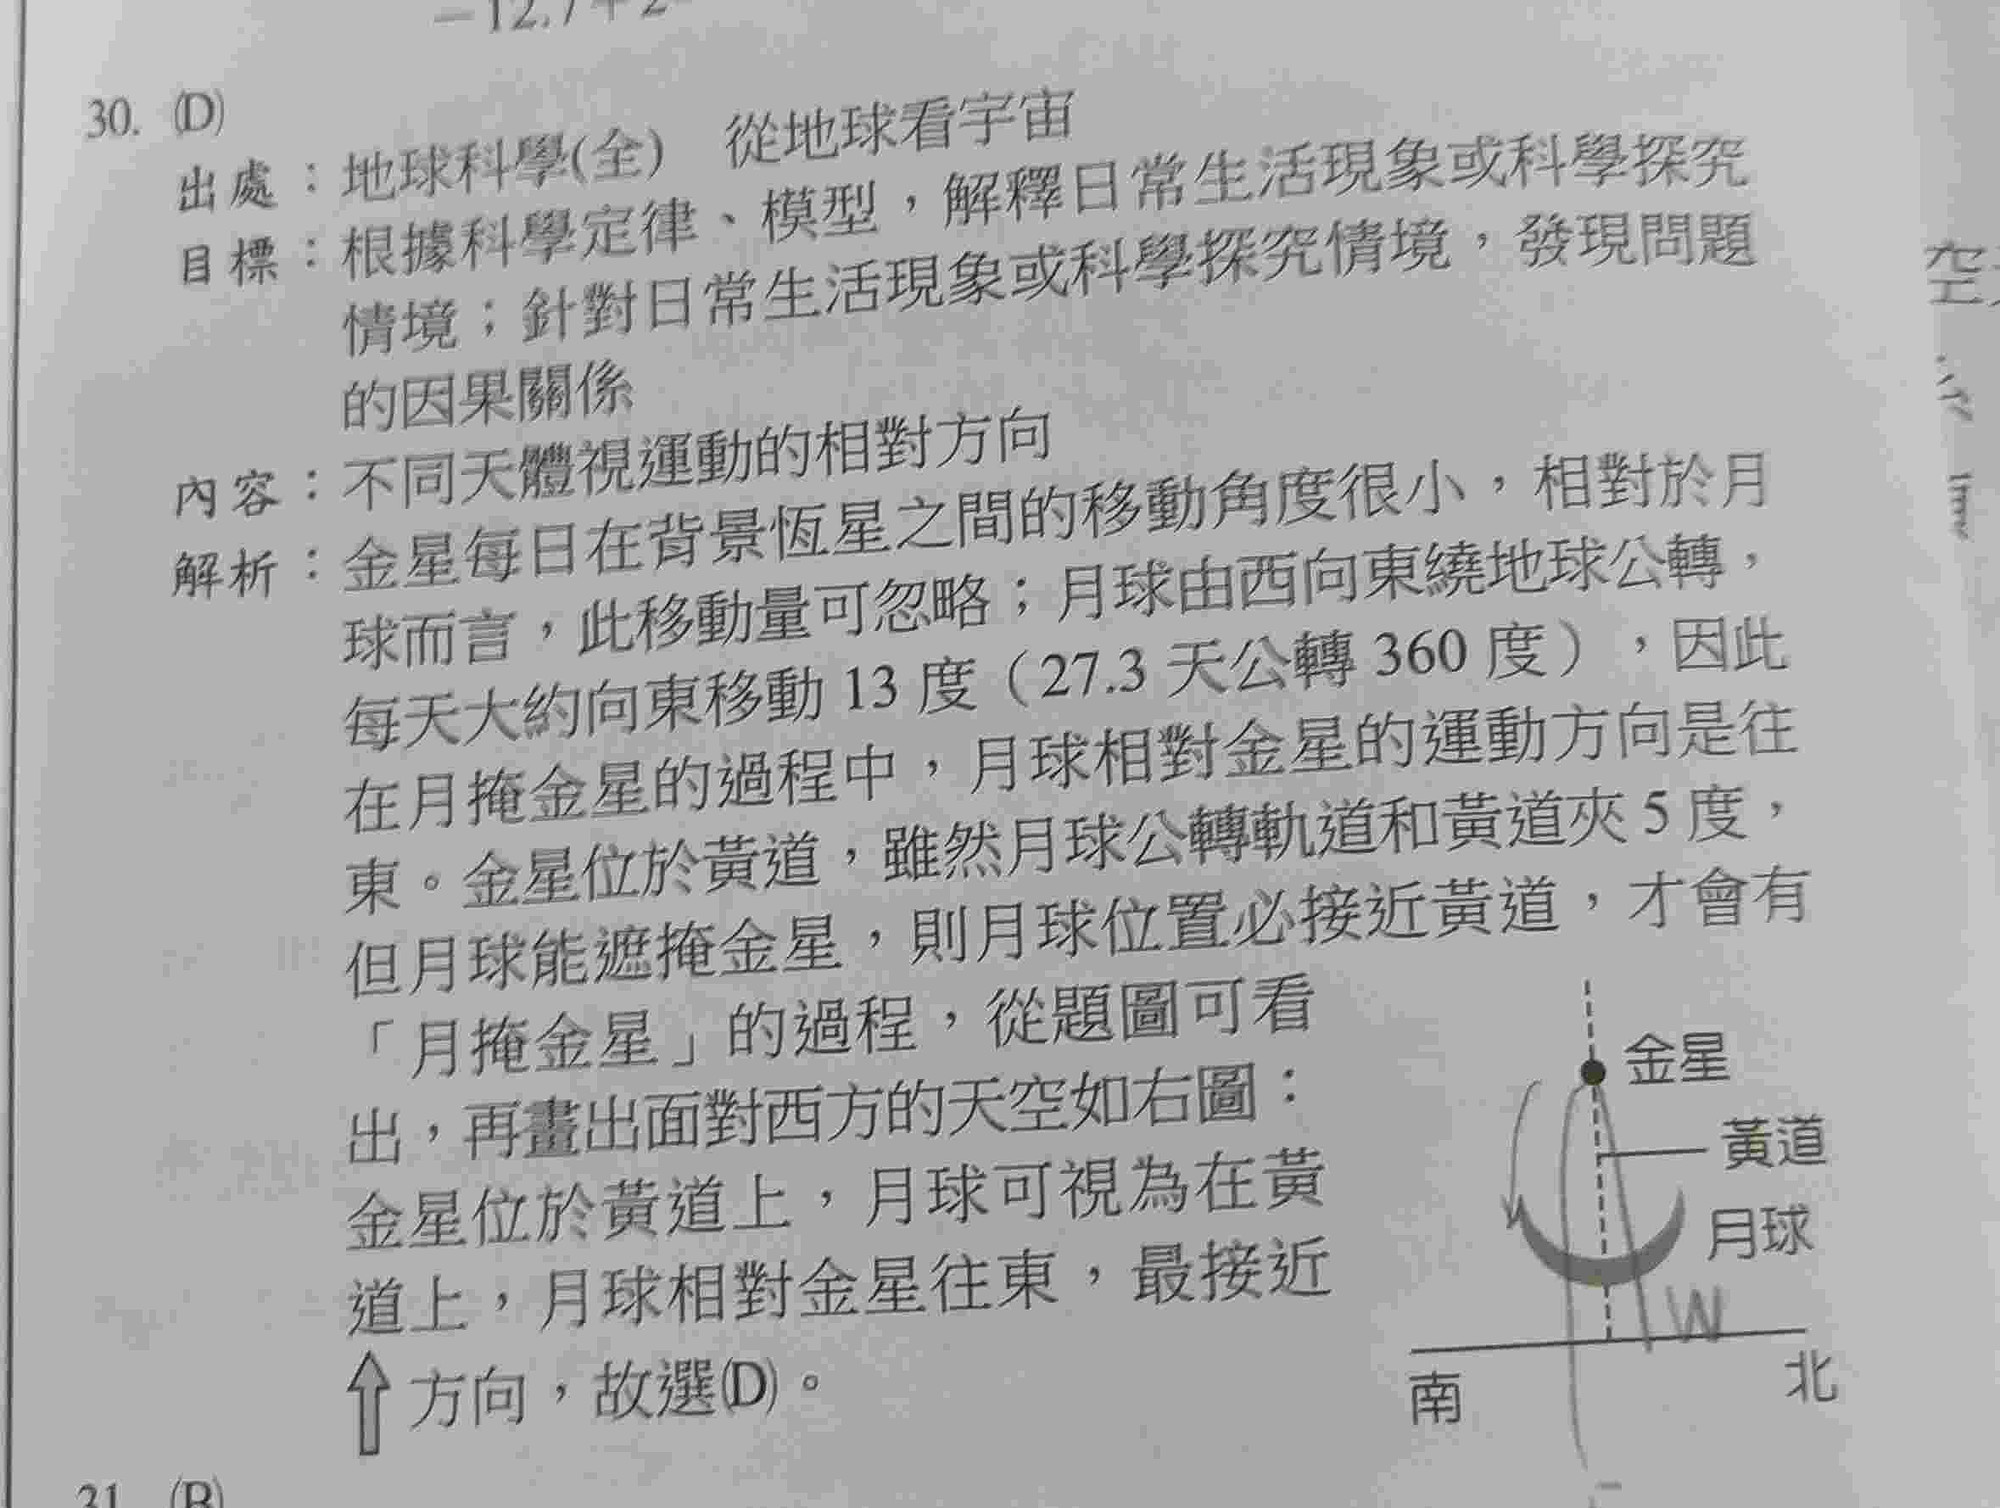 30. (D)
出處：地球科學(全)　從地球看宇宙
目標：根據科學定律、模型，解釋日常生活現象或科學探究
情境；針對日常生活現象或科學探究情境，發現問題
的因果關係
內容：不同天體視運動的相對方向
解析：金星每日在背景恆星之間的移動角度很小，相對於月
球而言，此移動量可忽略；月球由西向東繞地球公轉，
每天大約向東移動 13 度（27.3 天公轉 360 度），因此
在月掩金星的過程中，月球相對金星的運動方向是往
東。金星位於黃道，雖然月球公轉軌道和黃道夾 5 度，
但月球能遮掩金星，則月球位置必接近黃道，才會有
「月掩金星」的過程，從題圖可看
出，再畫出面對西方的天空如右圖：
金星位於黃道上，月球可視為在黃
道上，月球相對金星往東，最接近
⇧方向，故選(D)。
金星
黃道
月球
W
南
北
31. (B)